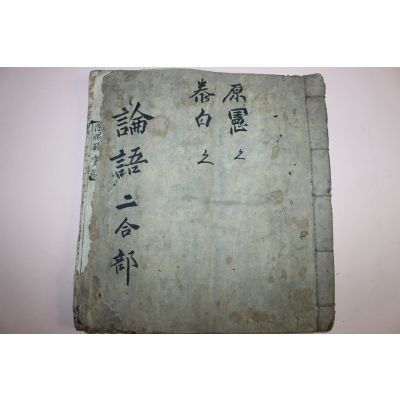 原憲之
泰白之
論語 二合部